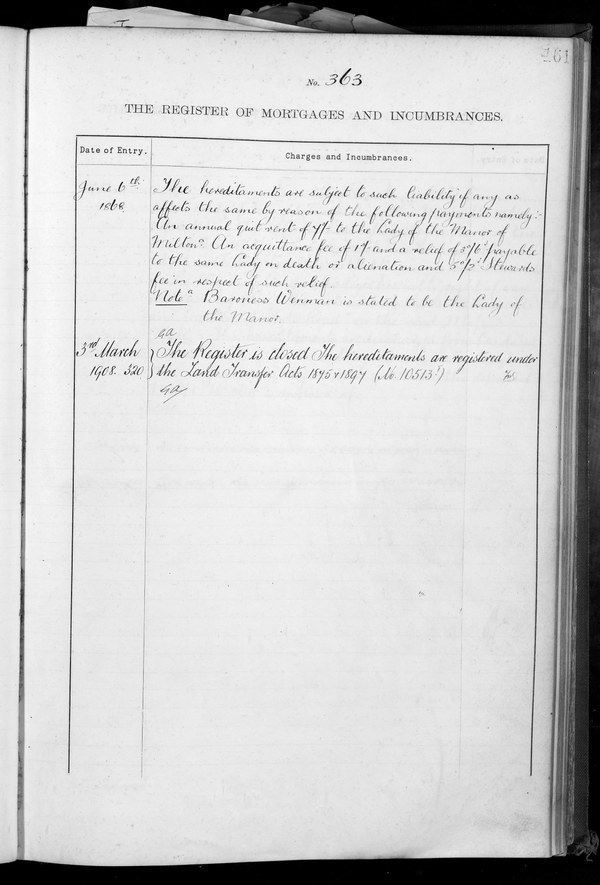 161
No. 363
THE REGISTER OF MORTGAGES AND INCUMBRANCES.
Date of Entry.
Charges and Incumbrances.
June 6th
1868
The hereditaments are subject to such liability if any as
affects the same by reason of the following payments namely:-
An annual quit rent of 7/- to the Lady of the Manor of
Milton. An acquittance fee of 1d and a relief of payable
to the same Lady on death or alienation and Stewards
fee in respect of such relief.
Note Baroness Wenman is stated to be the Lady of
the Manor.
3rd March
1908. 320
The Register is closed The hereditaments are registered under
the Land Transfer Acts 1875 & 1897 (No. 10513)